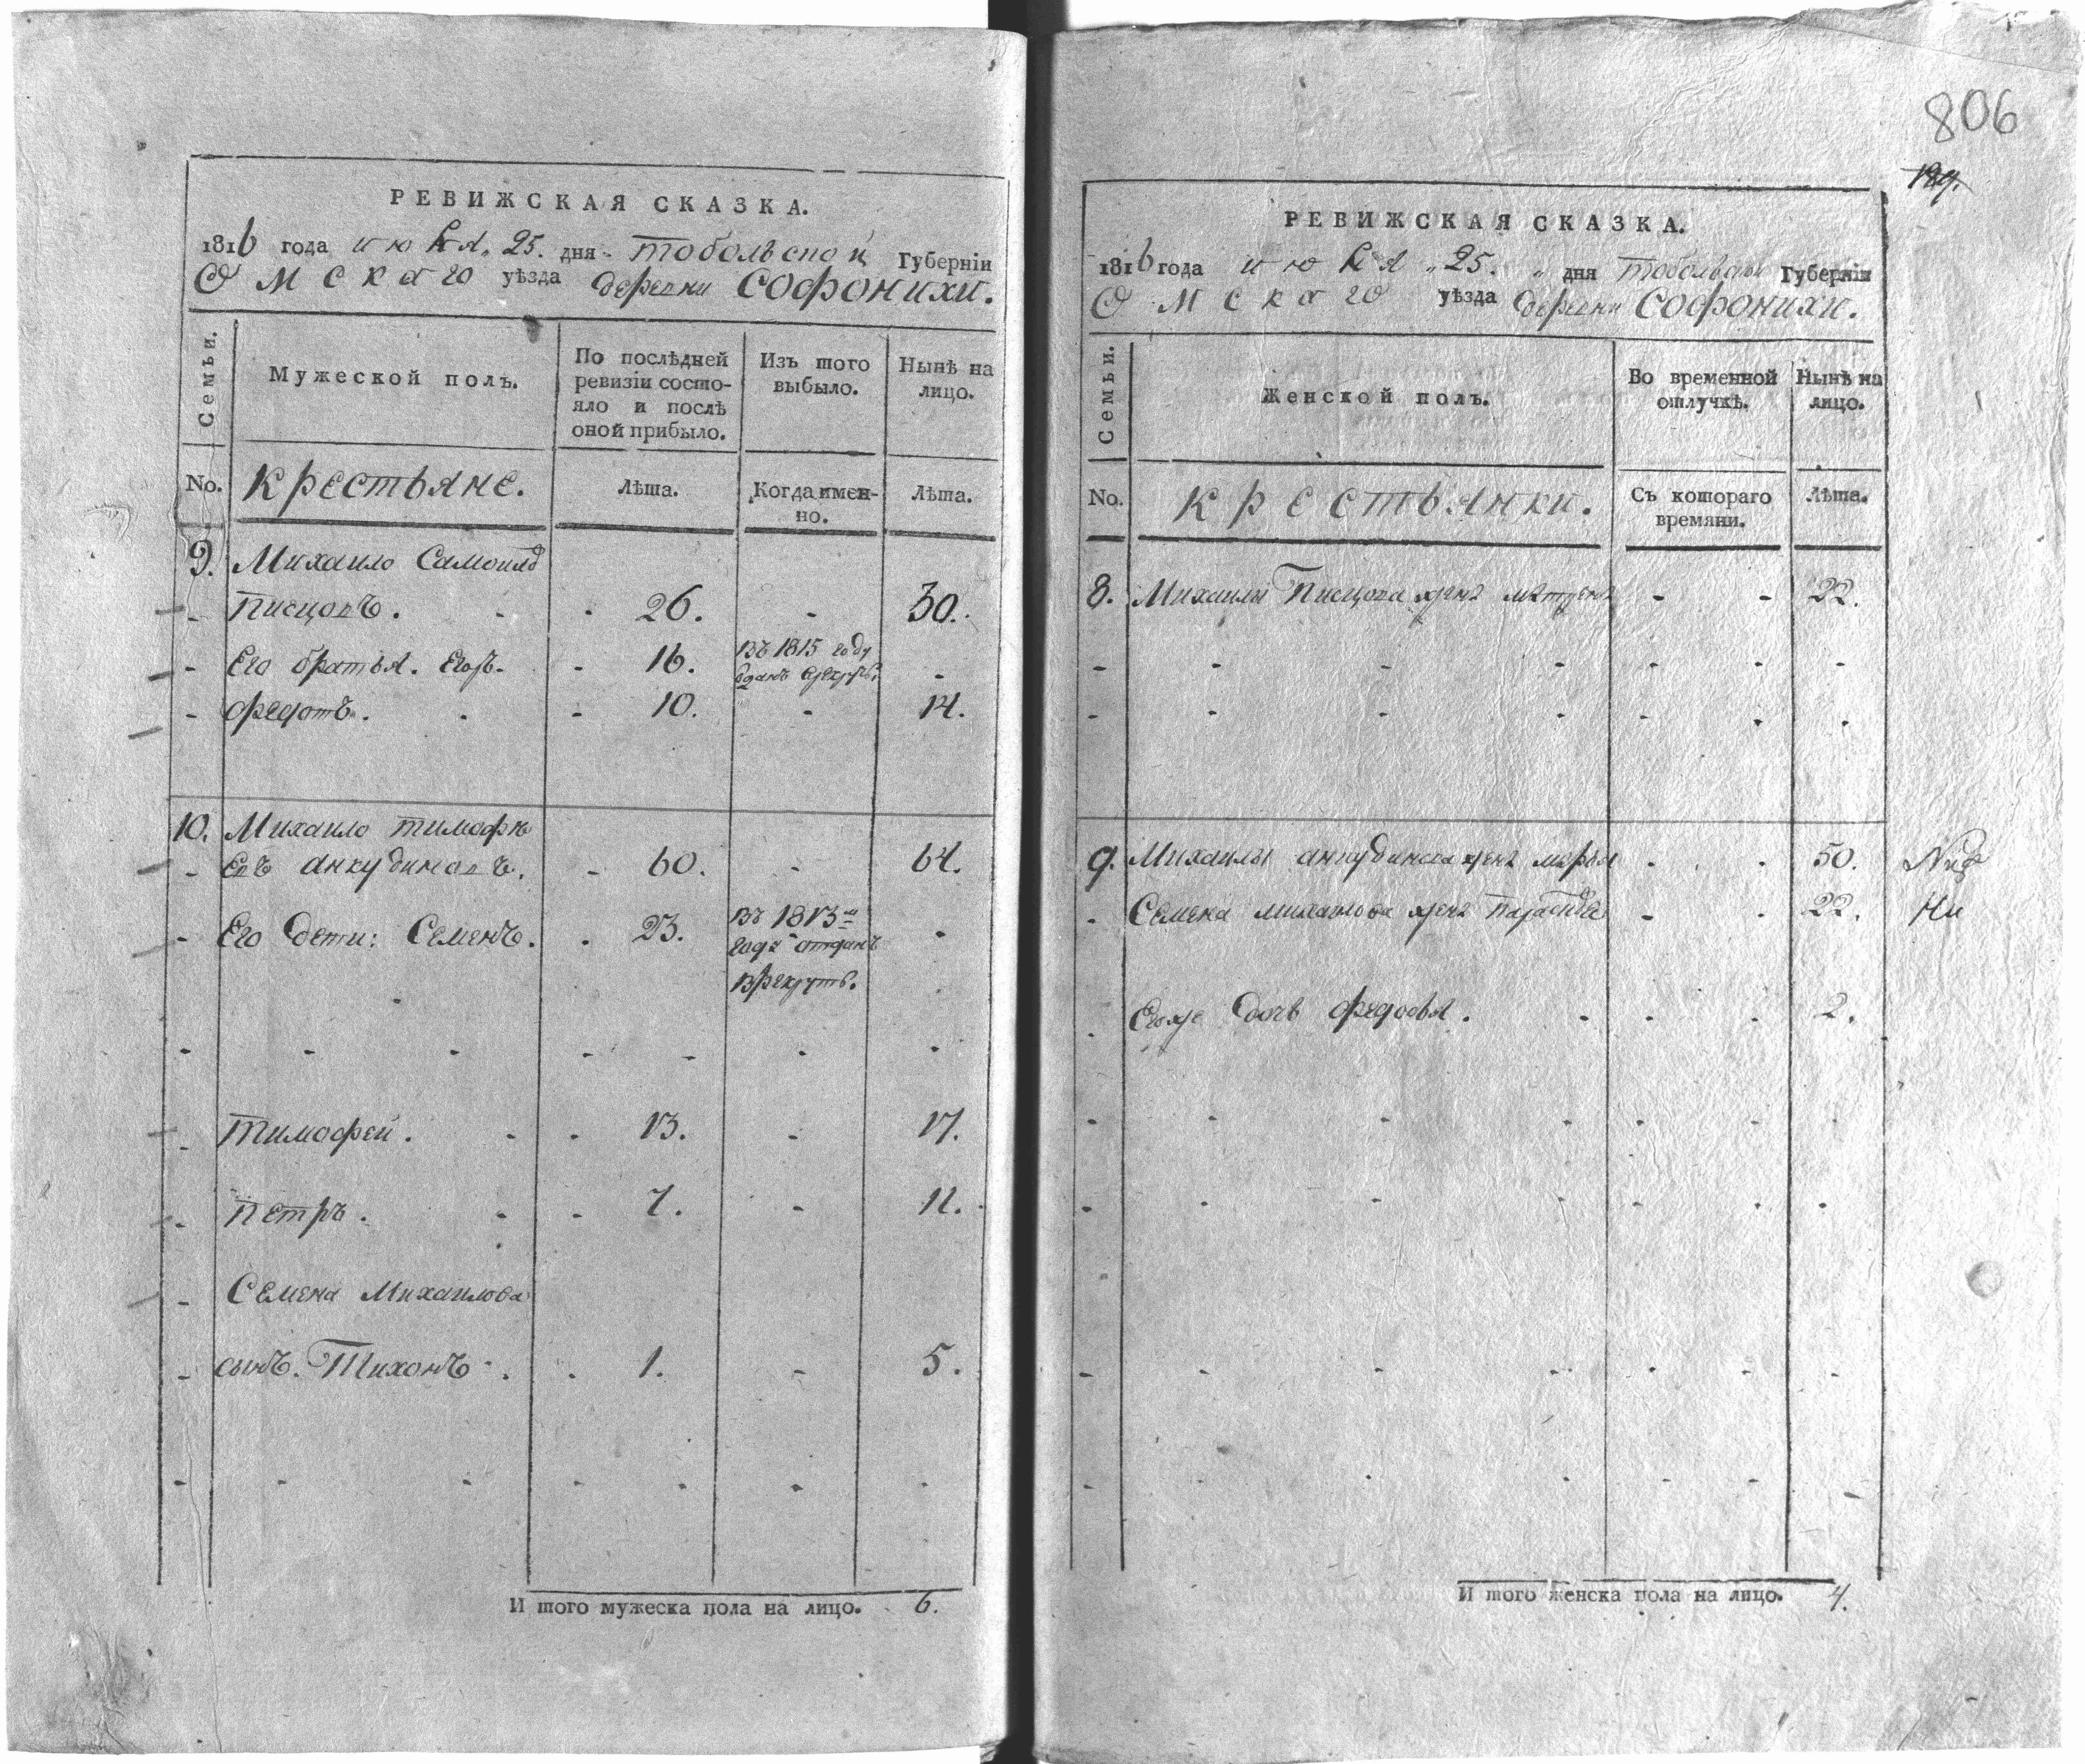 РЕВИЖСКАЯ СКАЗКА.
1816 года июля 25. дня Тобольской Губерніи
Омскаго уѣзда деревни Софонихи.
Семьи.
Мужеской полъ.
По послѣдней ревизіи состояло и послѣ оной прибыло.
Изъ того выбыло.
Нынѣ на лицо.
No.
Крестьяне.
Лѣта.
Когда именно.
Лѣта.
9. Михаило Самоилов
Писцовъ. 26. - 30.
Его братья. Егоръ. 16. Въ 1815 году -
Федотъ. 10. - 14.
10. Михаило Тимофѣ
евъ Анкудиновъ. 60. - 64.
Его дети: Семенъ. 23. въ 1813м -
года отданъ
в рекруты.
Тимофей. 13. - 17.
Петръ. 7. - 11.
Семена Михаилова
сынъ. Тихонъ. 1. - 5.
И того мужеска пола на лицо. 6.
806
РЕВИЖСКАЯ СКАЗКА.
1816 года июля 25. дня Тобольской Губерніи
Омскаго уѣзда деревни Софонихи.
Семьи.
Женской полъ.
Во временной отлучкѣ.
Нынѣ на лицо.
No.
Крестьянки.
Съ котораго времяни.
Лѣта.
8. Михаилы Писцова жена - - 22.
9. Михаилы Анкудинова жена Марья - - 50.
Семена Михаилова жена - - 22. Ни
Егоже дочь Федосья. - - 2.
И того женска пола на лицо. 4.